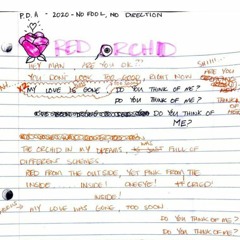 P.D.A - 2020 - NO FOOL, NO DIRECTION
RED ORCHID
HEY MAN, ARE YOU OK?? SHHH..
YOU DONT LOOK TOO GOOD, RIGHT NOW ARE YOU
MY LOVE IS GONE, DO YOU THINK OF ME?
DO YOU THINK OF ME?
DO YOU THINK OF
ME?
THE ORCHID IN MY DREAMS, WAS FULL OF
DIFFERENT SCHEMES.
RED FROM THE OUTSIDE, YET PINK FROM THE
INSIDE.... INSIDE!
INSIDE!
MY LOVE WAS GONE, TOO SOON
DO YOU THINK OF ME?
DO YOU THINK OF ME?